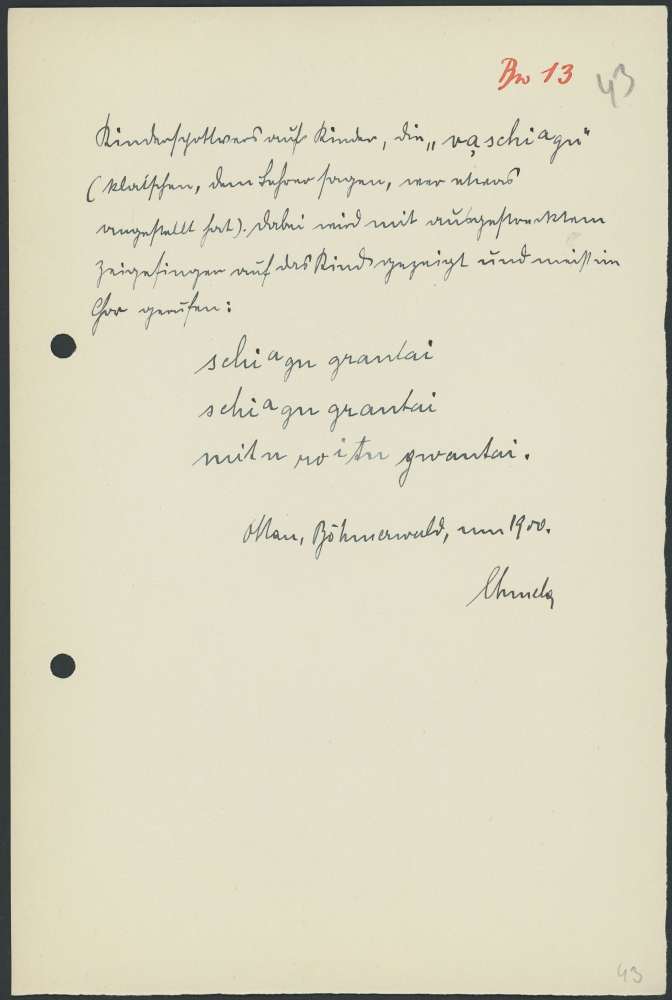 Bw 13
43
Kinderspottvers auf Kinder, die „vaschiagn"
(klatschen, dem Lehrer sagen, wer etwas
angestellt hat). Dabei wird mit ausgestrecktem
Zeigefinger auf das Kind gezeigt und meist im
Chor gerufen:
schiagn grantai
schiagn grantai
mit n roitn gwantai.
Ottau, Böhmerwald, um 1900.
43